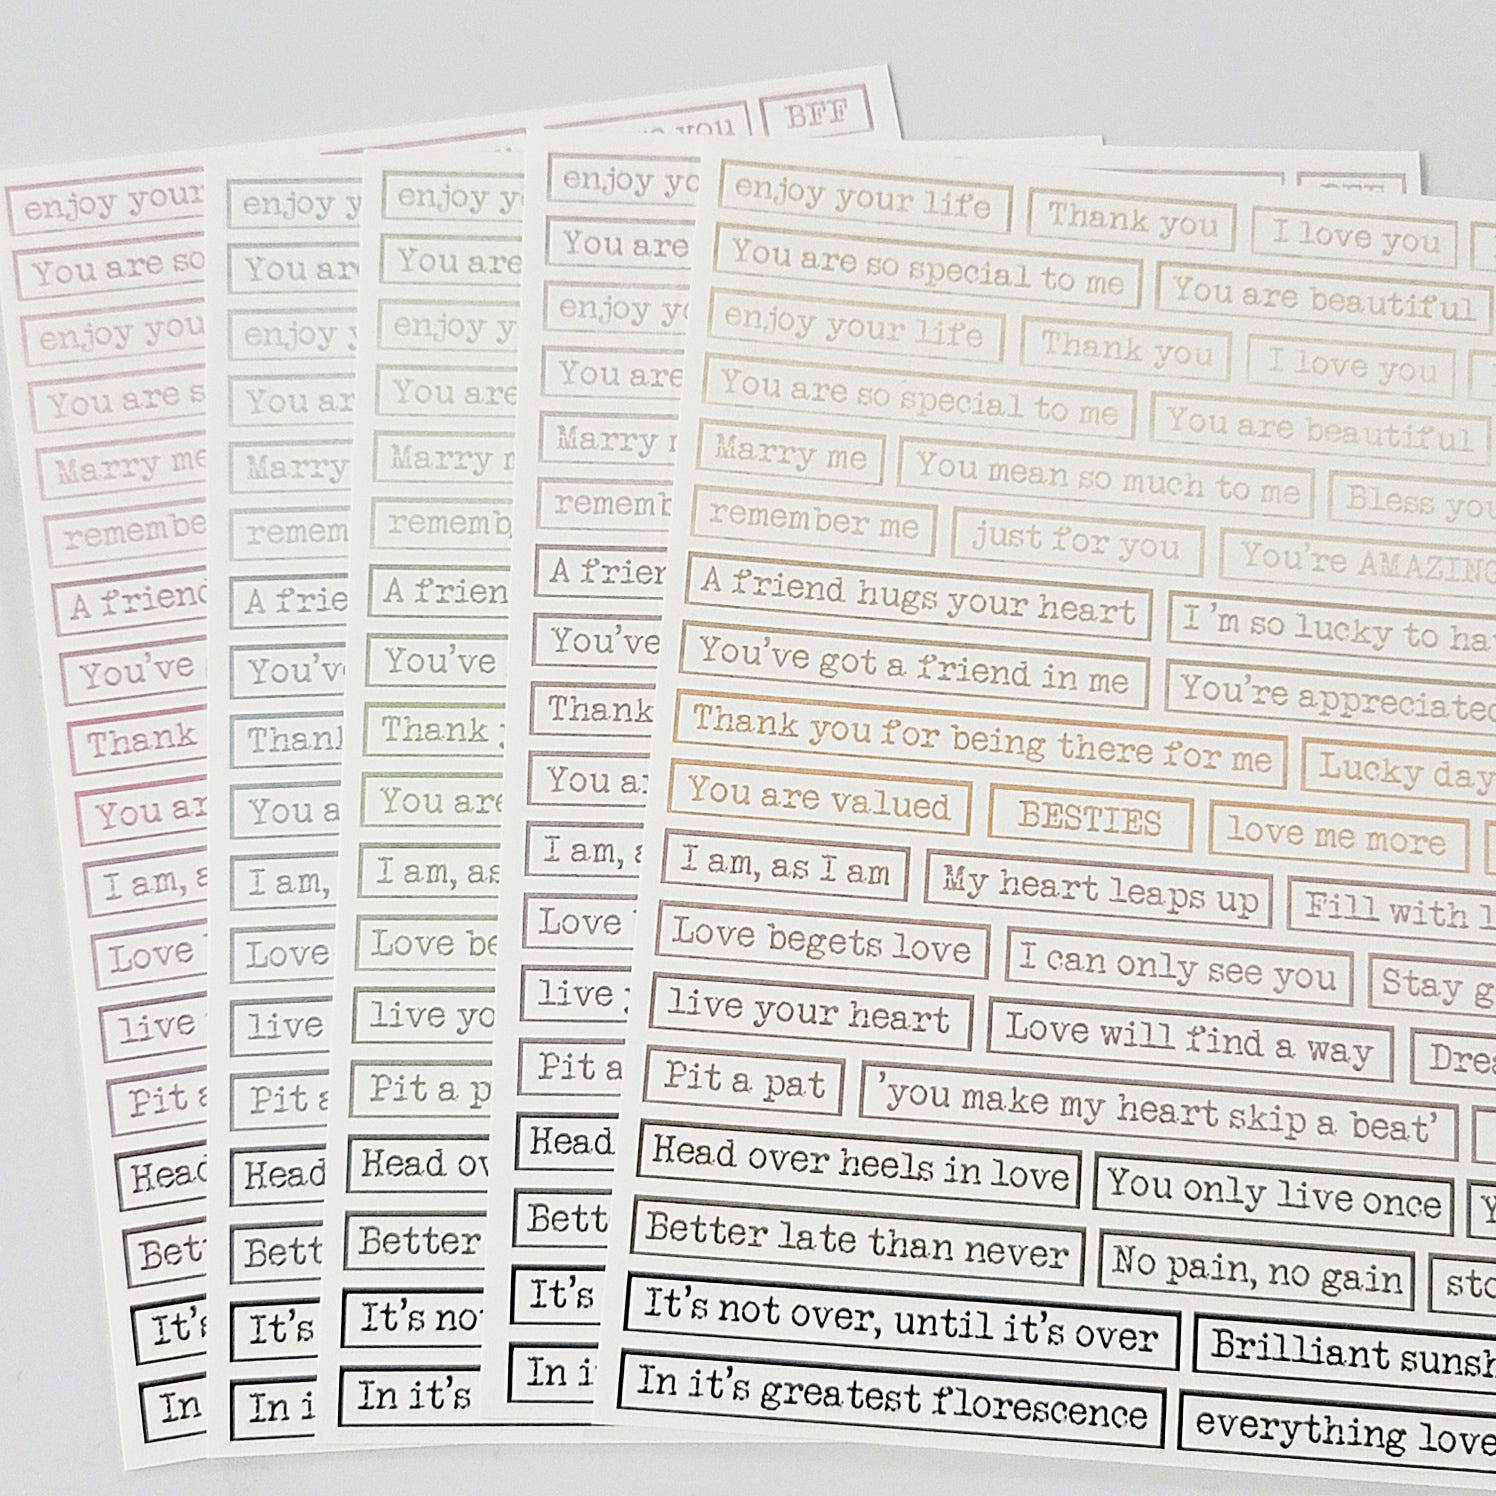 you BFF
enjoy your
You are so
enjoy you
You are s
Marry me
remembe
A friend
You've
Thank
You ar
I am, a
Love
live
Pit a
Head
Bett
It's
In
enjoy y
You are
enjoy y
You ar
Marry
remem
A frie
You've
Thank
You a
I am,
Love
live
Pit a
Head
Bett
It's
In i
enjoy y
You are
enjoy y
You are
Marry
rememb
A frien
You've
Thank
You are
I am, as
Love be
live yo
Pit a p
Head ov
Better
It's no
In it's
enjoy yo
You are
enjoy yo
You are
Marry
rememb
A frien
You've
Thank
You a
I am, a
Love
live
Pit a
Head
Bett
It's
In i
enjoy your life Thank you I love you
You are so special to me You are beautiful
enjoy your life Thank you I love you
You are so special to me You are beautiful
Marry me You mean so much to me Bless you
remember me just for you You're AMAZING
A friend hugs your heart I'm so lucky to ha
You've got a friend in me You're appreciated
Thank you for being there for me Lucky day
You are valued BESTIES love me more
I am, as I am My heart leaps up Fill with l
Love begets love I can only see you Stay g
live your heart Love will find a way Drea
Pit a pat 'you make my heart skip a beat'
Head over heels in love You only live once Y
Better late than never No pain, no gain sto
It's not over, until it's over Brilliant sunsh
In it's greatest florescence everything love